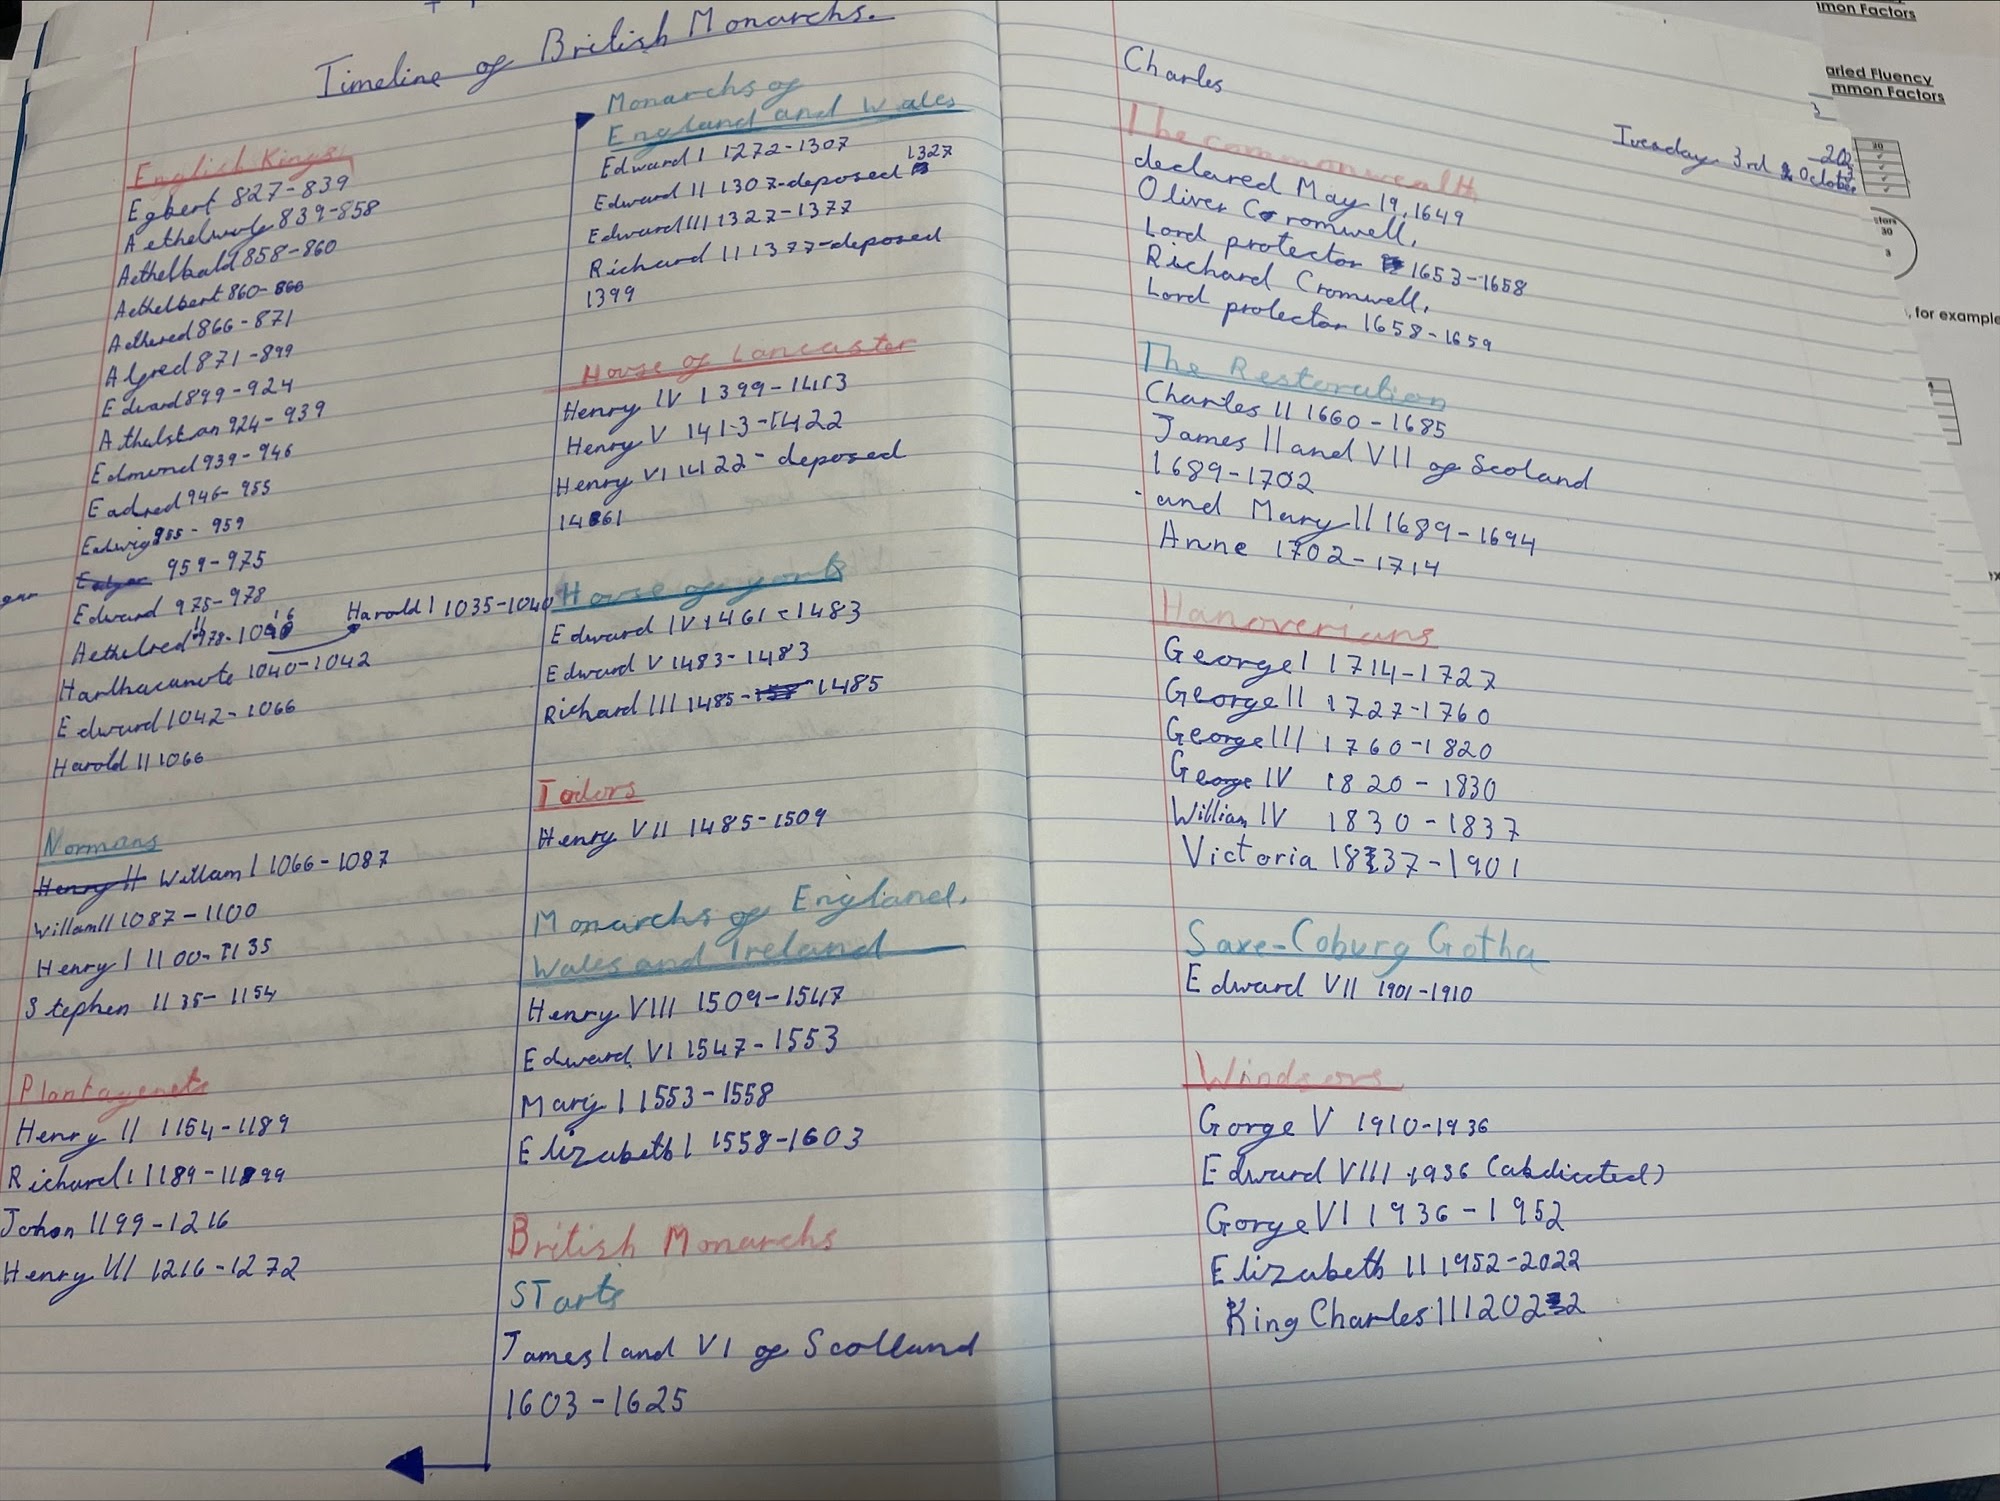 Timeline of British Monarchs.
English Kings
Egbert 827-839
Aethelwulf 839-858
Aethelbald 858-860
Aethelbert 860-866
Aethered 866-871
Alfred 871-899
Edward 899-924
Athelstan 924-939
Edmond 939-946
Eadred 946-955
Eadwig 955-959
959-975
Edward 975-978
Aethelred II 978-1016
Harold I 1035-1040
Harthacanute 1040-1042
Edward 1042-1066
Harold II 1066
Normans
Henry II Willam I 1066-1087
Willam II 1087-1100
Henry I 1100-1135
Stephen 1135-1154
Plantagenets
Henry II 1154-1189
Richard I 1189-1199
Johon 1199-1216
Henry III 1216-1272
Monarchs of
England and Wales
Edward I 1272-1307
Edward II 1307-deposed 1327
Edward III 1327-1377
Richard II 1377-deposed
1399
House of Lancaster
Henry IV 1399-1413
Henry V 1413-1422
Henry VI 1422-deposed
1461
House of york
Edward IV 1461-1483
Edward V 1483-1483
Richard III 1485-1485
Todors
Henry VII 1485-1509
Monarchs of England,
Wales and Ireland
Henry VIII 1509-1547
Edward VI 1547-1553
Mary I 1553-1558
Elizabeth I 1558-1603
British Monarchs
STarts
James I and VI of Scotland
1603-1625
Charles
Tuesday 3rd October
The commonwealth
declared May 19, 1649
Oliver Cromwell,
Lord protector 1653-1658
Richard Cromwell,
Lord protector 1658-1659
The Restoration
Charles II 1660-1685
James II and VII of Scoland
1689-1702
and Mary II 1689-1694
Anne 1702-1714
Hanoverians
George I 1714-1727
George II 1727-1760
George III 1760-1820
George IV 1820-1830
William IV 1830-1837
Victoria 1837-1901
Saxe-Coburg Gotha
Edward VII 1901-1910
Windsors
Gorge V 1910-1936
Edward VIII 1936 (abdicated)
Gorge VI 1936-1952
Elizabeth II 1952-2022
King Charles III 2022
mon Factors
aried Fluency
mmon Factors
30
, for example